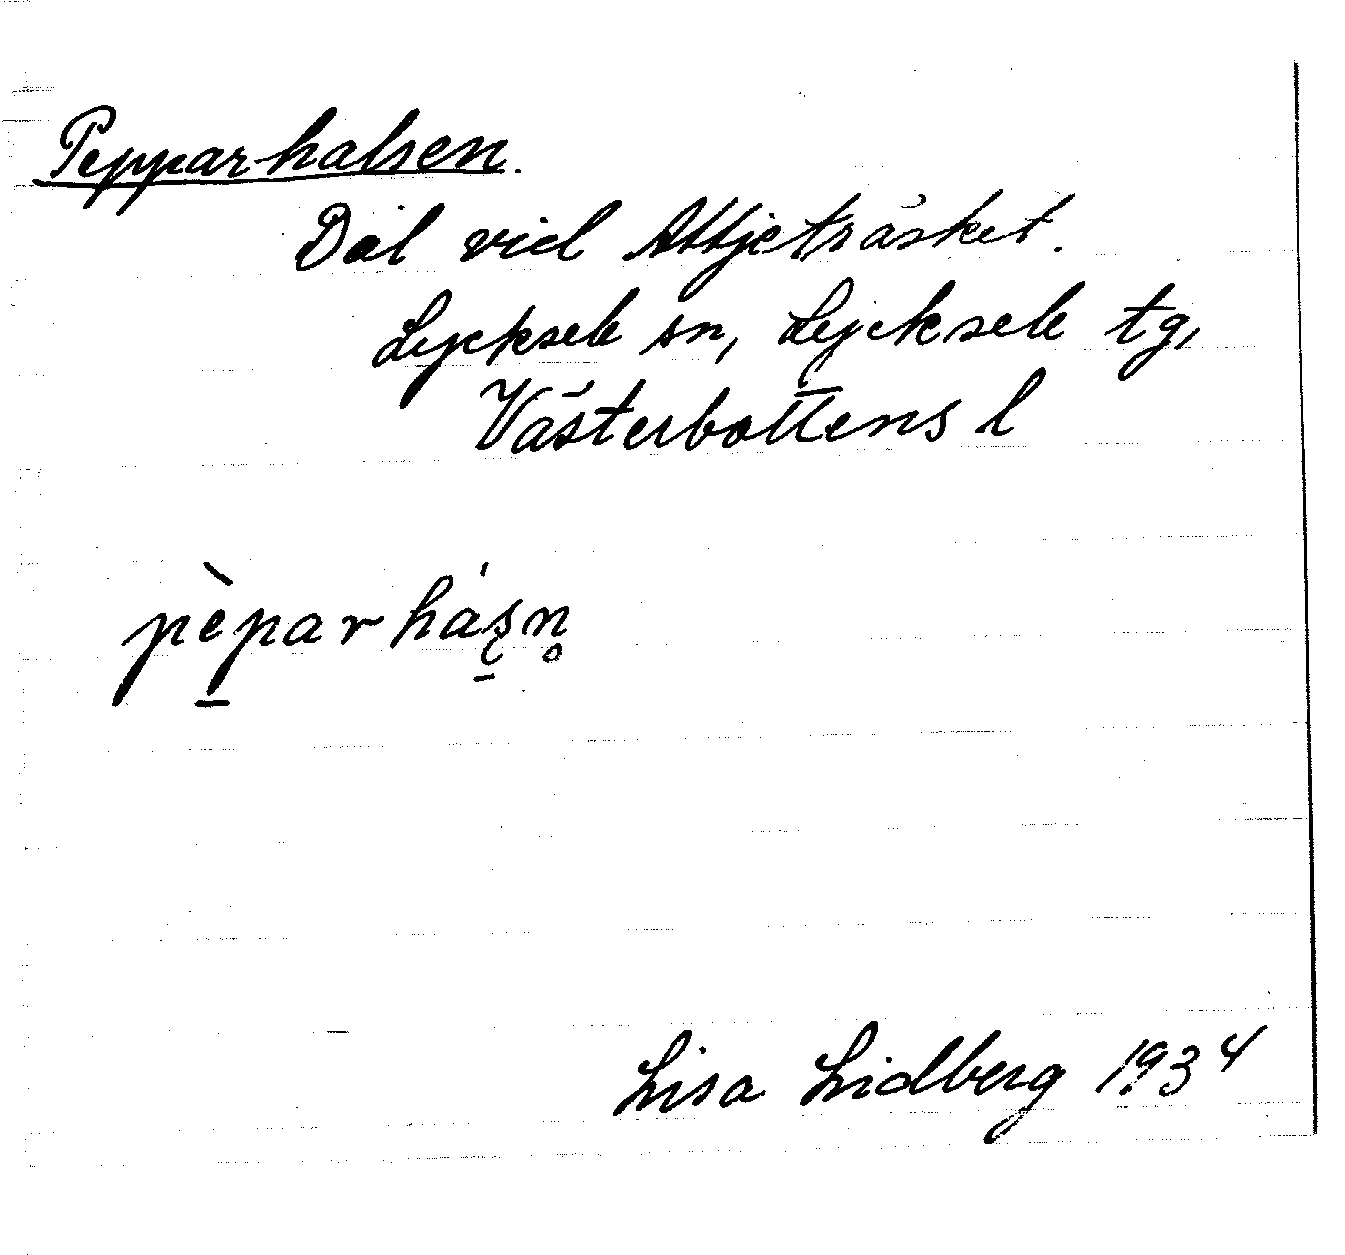 Pepparhalsen.
Dal vid Attjeträsket.
Lycksele sn, Lycksele tg,
Västerbottens l
pèparhásn̥
Lisa Lidberg 1934